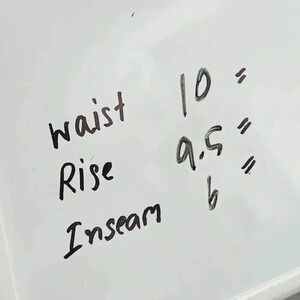 Waist 10"
Rise 9.5"
Inseam 6"